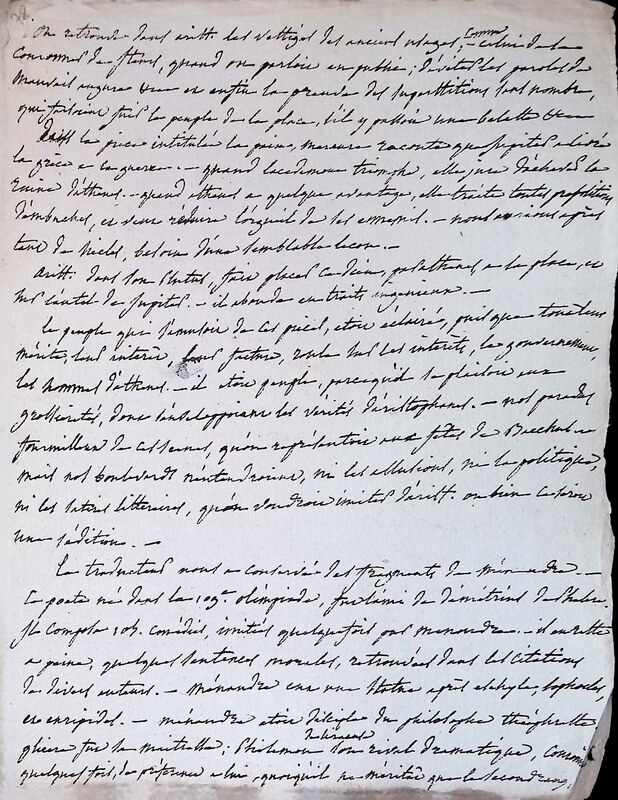 On retrouve dans arist. les vestiges des anciens usages, comme celui de la
couronne de fleurs, quand on parloit en public; d'éviter les paroles de
mauvais augure et enfin la preuve des superstitions sans nombre,
qui faisoient fuir le peuple de la place, s'il y passoit une belette
dans la piece intitulée la paix, mercure raconte que Jupiter a livré
la grèce a la guerre. — quand lacedemone triomphe, elle jure d'achever la
ruine d'athenes. — quand athenes a quelque avantage, elle traite toutes propositions
d'embuches, et veut réduire l'orgueil de ses ennemis. — nous avions après
tant de siecles, besoin d'une semblable leçon. —
arist. dans son Plutus, fait placer ce dieu, par athenes a la place, et
sur l'autel de Jupiter. — il abonde en traits ingenieux. —
le peuple qui s'amusoit de ces pieces, etoit éclairé, puisque tout leur
mérite, leur interêt, leur facture, roule sur les interêts, le gouvernement,
les hommes d'athenes. — il etoit peuple, parcequ'il se plaisoit aux
grossieretés, dont sont les vérités d'aristophane. — nos parades
fourmillent de ces scenes, qu'on représentoit aux fetes de Bacchus.
mais nos boulevards n'entendroient, ni les allusions, ni la politique,
ni les satires litteraires, qu'on voudroit imiter d'arist. ou bien ce seroit
une sédition. —
Le traducteur nous a conservé des fragments de Ménandre. —
Ce poete né dans la 109e. olimpiade, fut l'ami de démétrius de Phalere.
Il composa 108. comédies, imitées quelquefois par . — il en reste
a peine, quelques sentences morales, retrouvées dans les citations
de divers auteurs. — Ménandre eut une statue après eschyle, sophocle,
et euripide. — ménandre etoit disciple du philosophe théophraste
glicere fut sa maitresse; Philemon son rival dramatique, couronné
quelques fois, de préférence a lui, quoiqu'il ne méritat que le second rang,